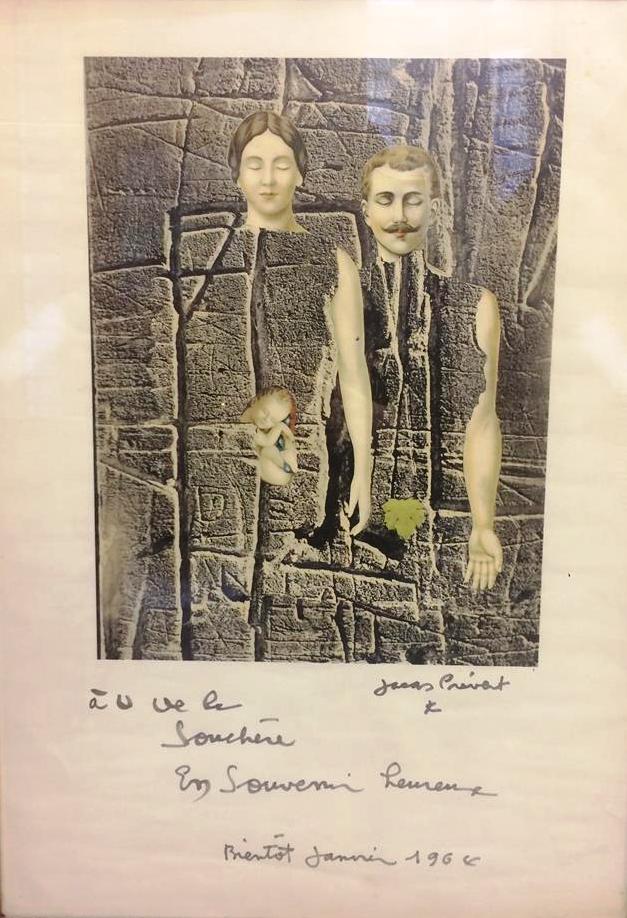 Jacques Prévert
à D de la
Souchère
En Souvenir heureux
Bientôt Janvier 1964